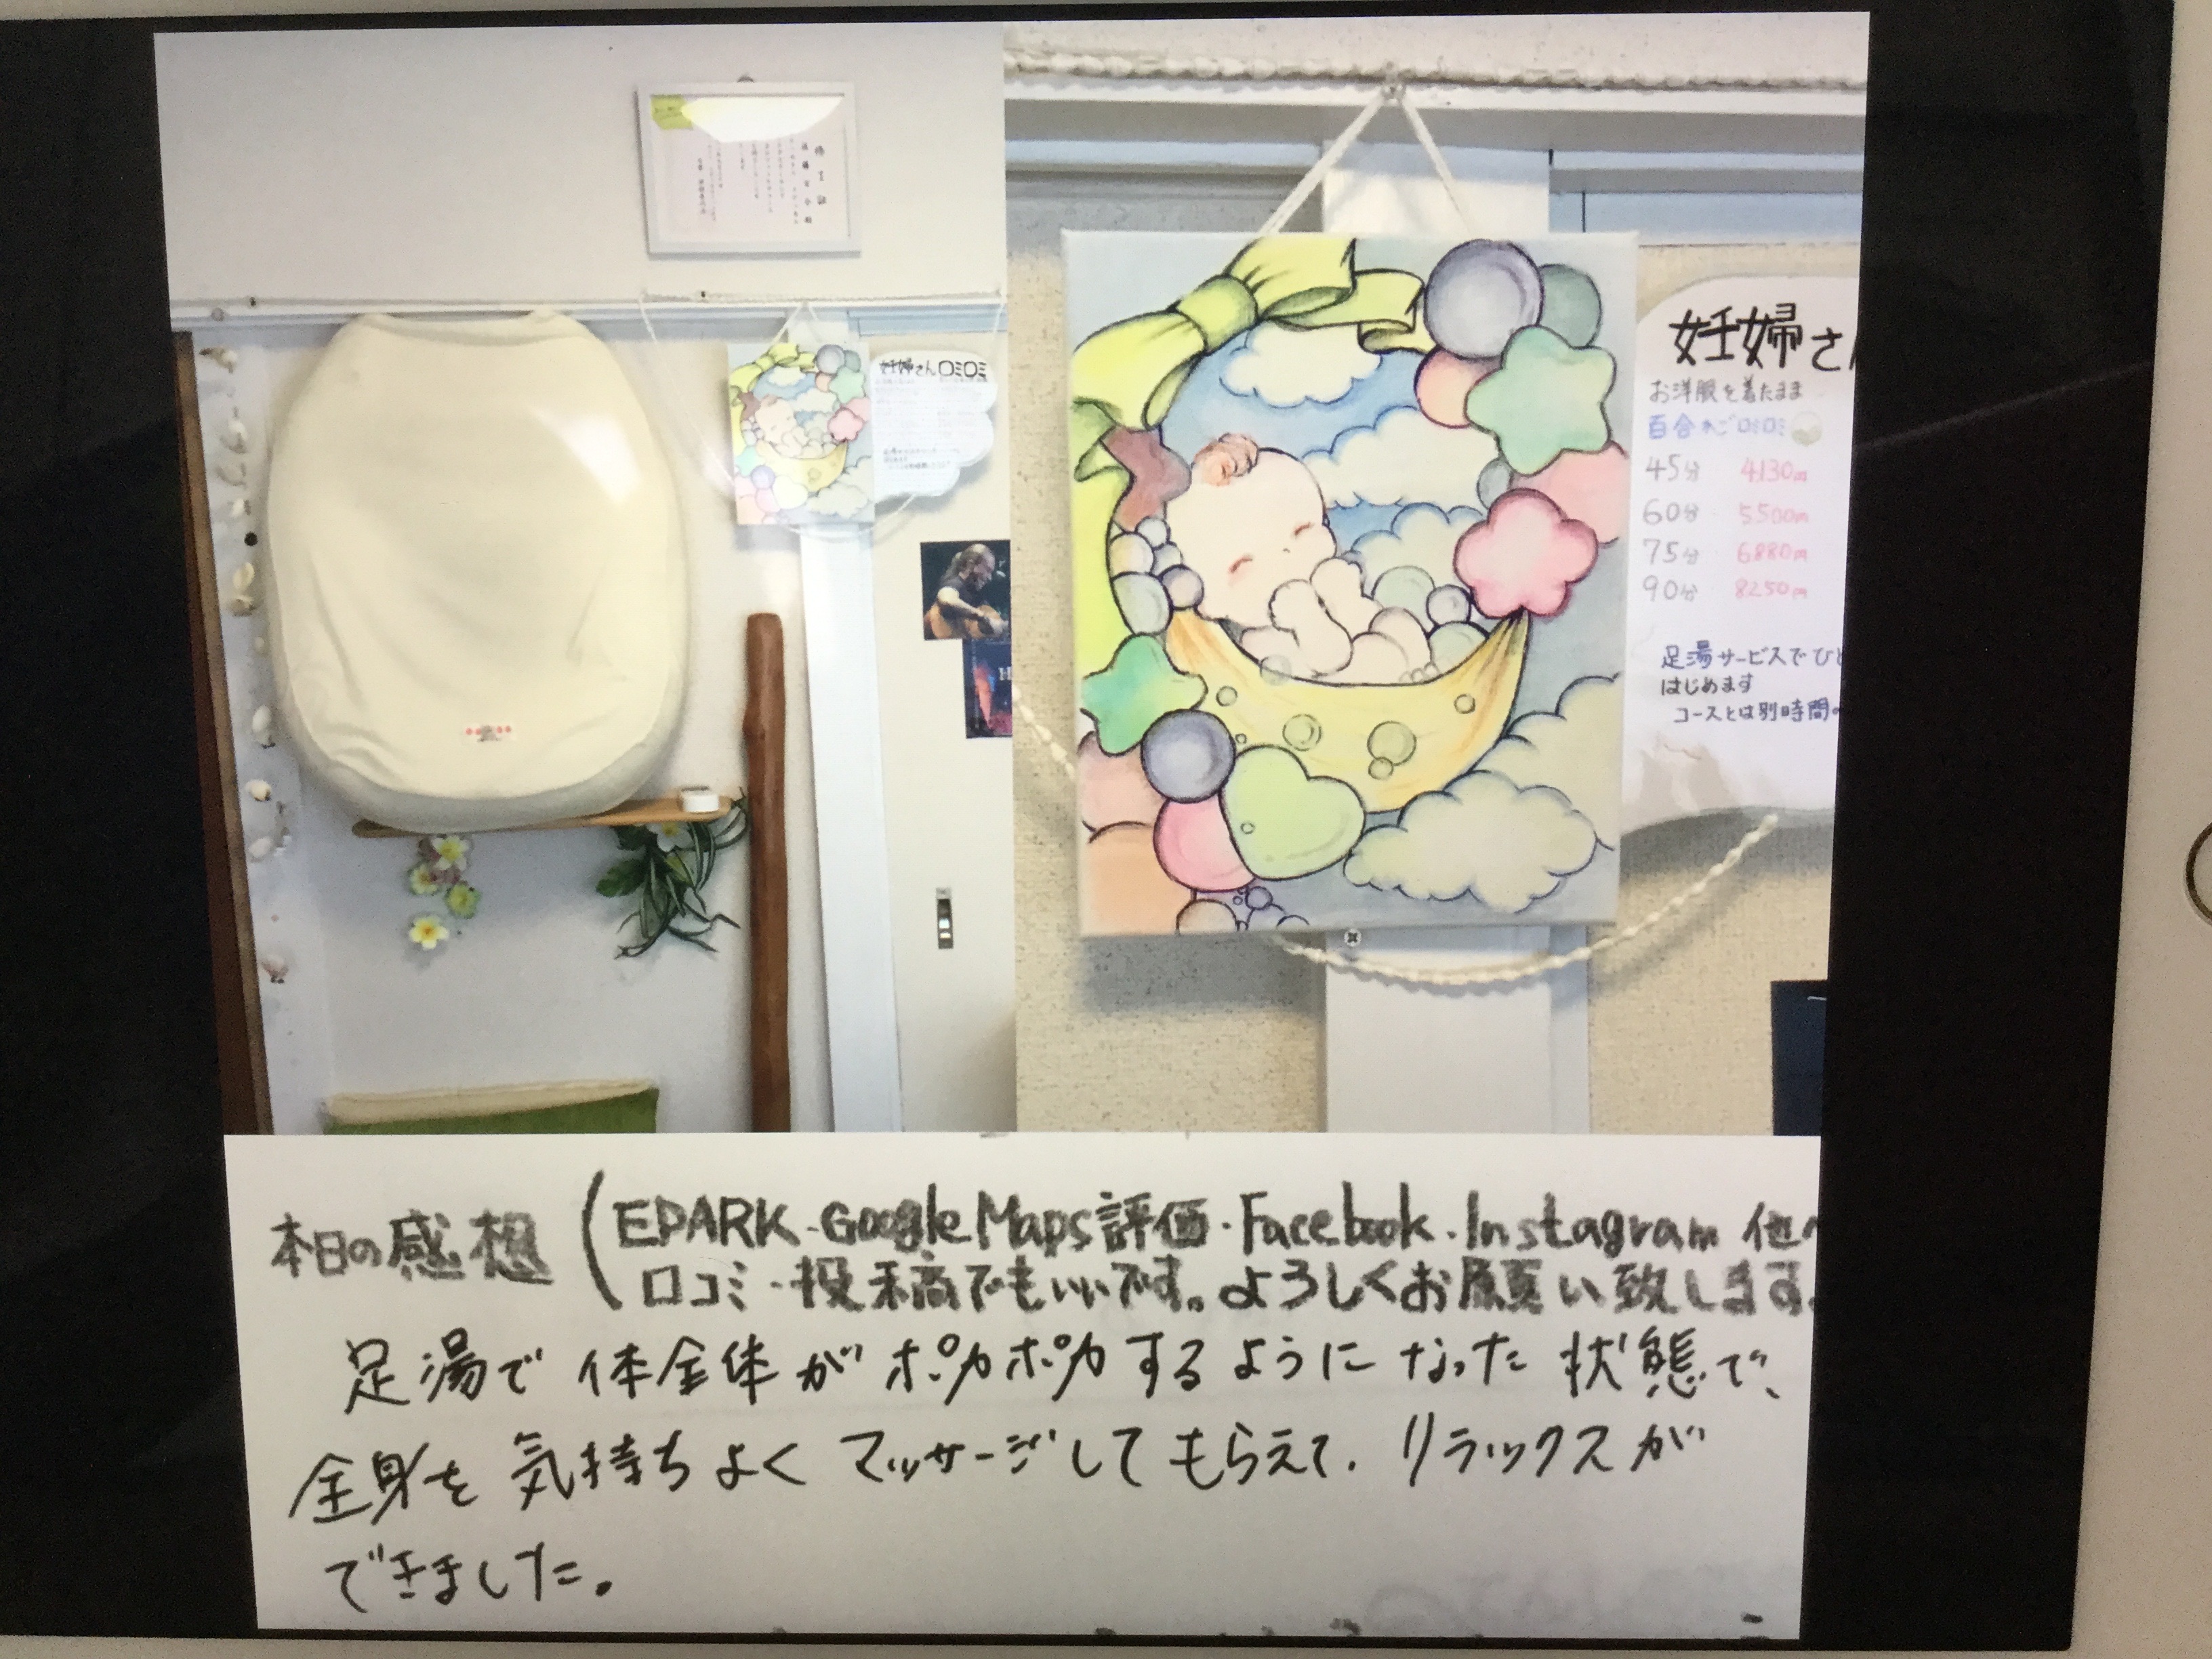 妊婦さんロミロミ
妊婦さ
お洋服を着たまま
45分 4130円
60分 5500円
75分 6880円
90分 8250円
足湯サービスでひと
はじめます
コースとは別時間
本日の感想
EPARK・Google Maps評価・Facebook・Instagram 他
口コミ・投稿でもいいです。よろしくお願い致します。
足湯で体全体がポカポカするようになった状態で、
全身を気持ちよくマッサージしてもらえて、リラックスが
できました。